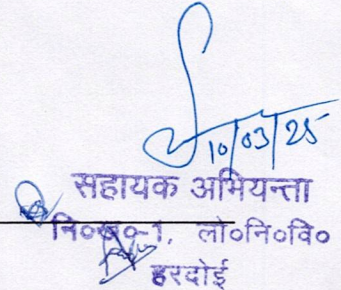 10/03/25
सहायक अभियन्ता
नि०ख०-1, लो०नि०वि०
हरदोई